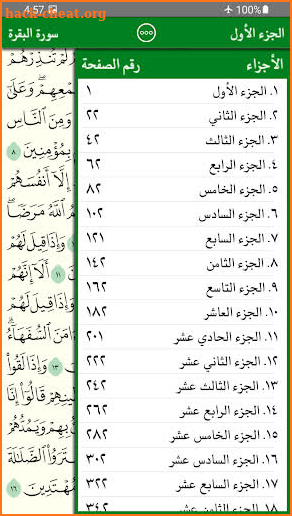 4:57 100%
hack-cheat.org
الجزء الأول سورة البقرة
الأجزاء رقم الصفحة
١. الجزء الأول ١
٢. الجزء الثاني ٢٢
٣. الجزء الثالث ٤٢
٤. الجزء الرابع ٦٢
٥. الجزء الخامس ٨٢
٦. الجزء السادس ١٠٢
٧. الجزء السابع ١٢١
٨. الجزء الثامن ١٤٢
٩. الجزء التاسع ١٦٢
١٠. الجزء العاشر ١٨٢
١١. الجزء الحادي عشر ٢٠١
١٢. الجزء الثاني عشر ٢٢٢
١٣. الجزء الثالث عشر ٢٤٢
١٤. الجزء الرابع عشر ٢٦٢
١٥. الجزء الخامس عشر ٢٨٢
١٦. الجزء السادس عشر ٣٠٢
١٧. الجزء السابع عشر ٣٢٢
١٨. الجزء الثامن عشر ٣٤٢
لَمْ تُنذِرْهُمْ
وَعَلَىٰ
وَمِنَ ٱلنَّاسِ
بِمُؤْمِنِينَ ٨
إِلَّآ أَنفُسَهُمْ
ٱللَّهُ مَرَضًا
وَإِذَا قِيلَ لَهُمْ
١١ أَلَآ إِنَّهُمْ
وَإِذَا قِيلَ لَهُمْ
ءَامَنَ ٱلسُّفَهَآءُ
١٣ وَإِذَا لَقُوا۟
قَالُوٓا۟ إِنَّا
بِهِمْ وَيَمُدُّهُمْ
ٱشْتَرَوُا۟ ٱلضَّلَٰلَةَ
مُهْتَدِينَ ١٦